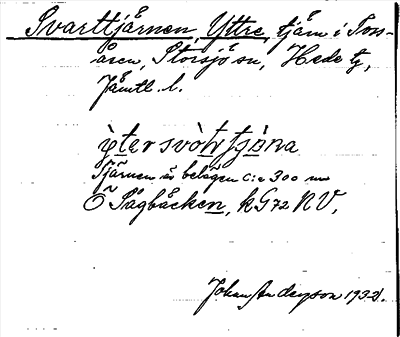 Svarttjärnen, Yttre, tjärn i Toss-
åsen, Storsjö sn, Hede tg,
Jämtl. l.
ỳtersvòt̬tjä̀na
Tjärnen är belägen c:a 300 m
Ö Sågbäcken, kG72 NV.
Johan Anderson 1932.